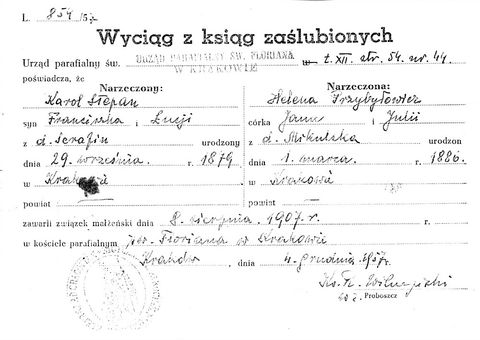 L. 854/57
Wyciąg z ksiąg zaślubionych
Urząd parafialny św. URZĄD PARAFIALNY ŚW. FLORIANA W KRAKOWIE w t. XII. str. 54. nr. 44.
poświadcza, że
Narzeczony: Narzeczona:
Karol Stepan Helena Przybyłowicz
syn Franciszka i Łucji córka Jana i Julii
z d. Serafin urodzony z d. Mikulska urodzon
dnia 29. września r. 1879. dnia 1. marca r. 1886.
w Krakowie w Krakowie
powiat — powiat —
zawarli związek małżeński dnia 8. sierpnia 1907. r. r.
w kościele parafialnym św. Floriana w Krakowie
Kraków, dnia 4. grudnia 1957 r.
Ks. Fr.
Proboszcz